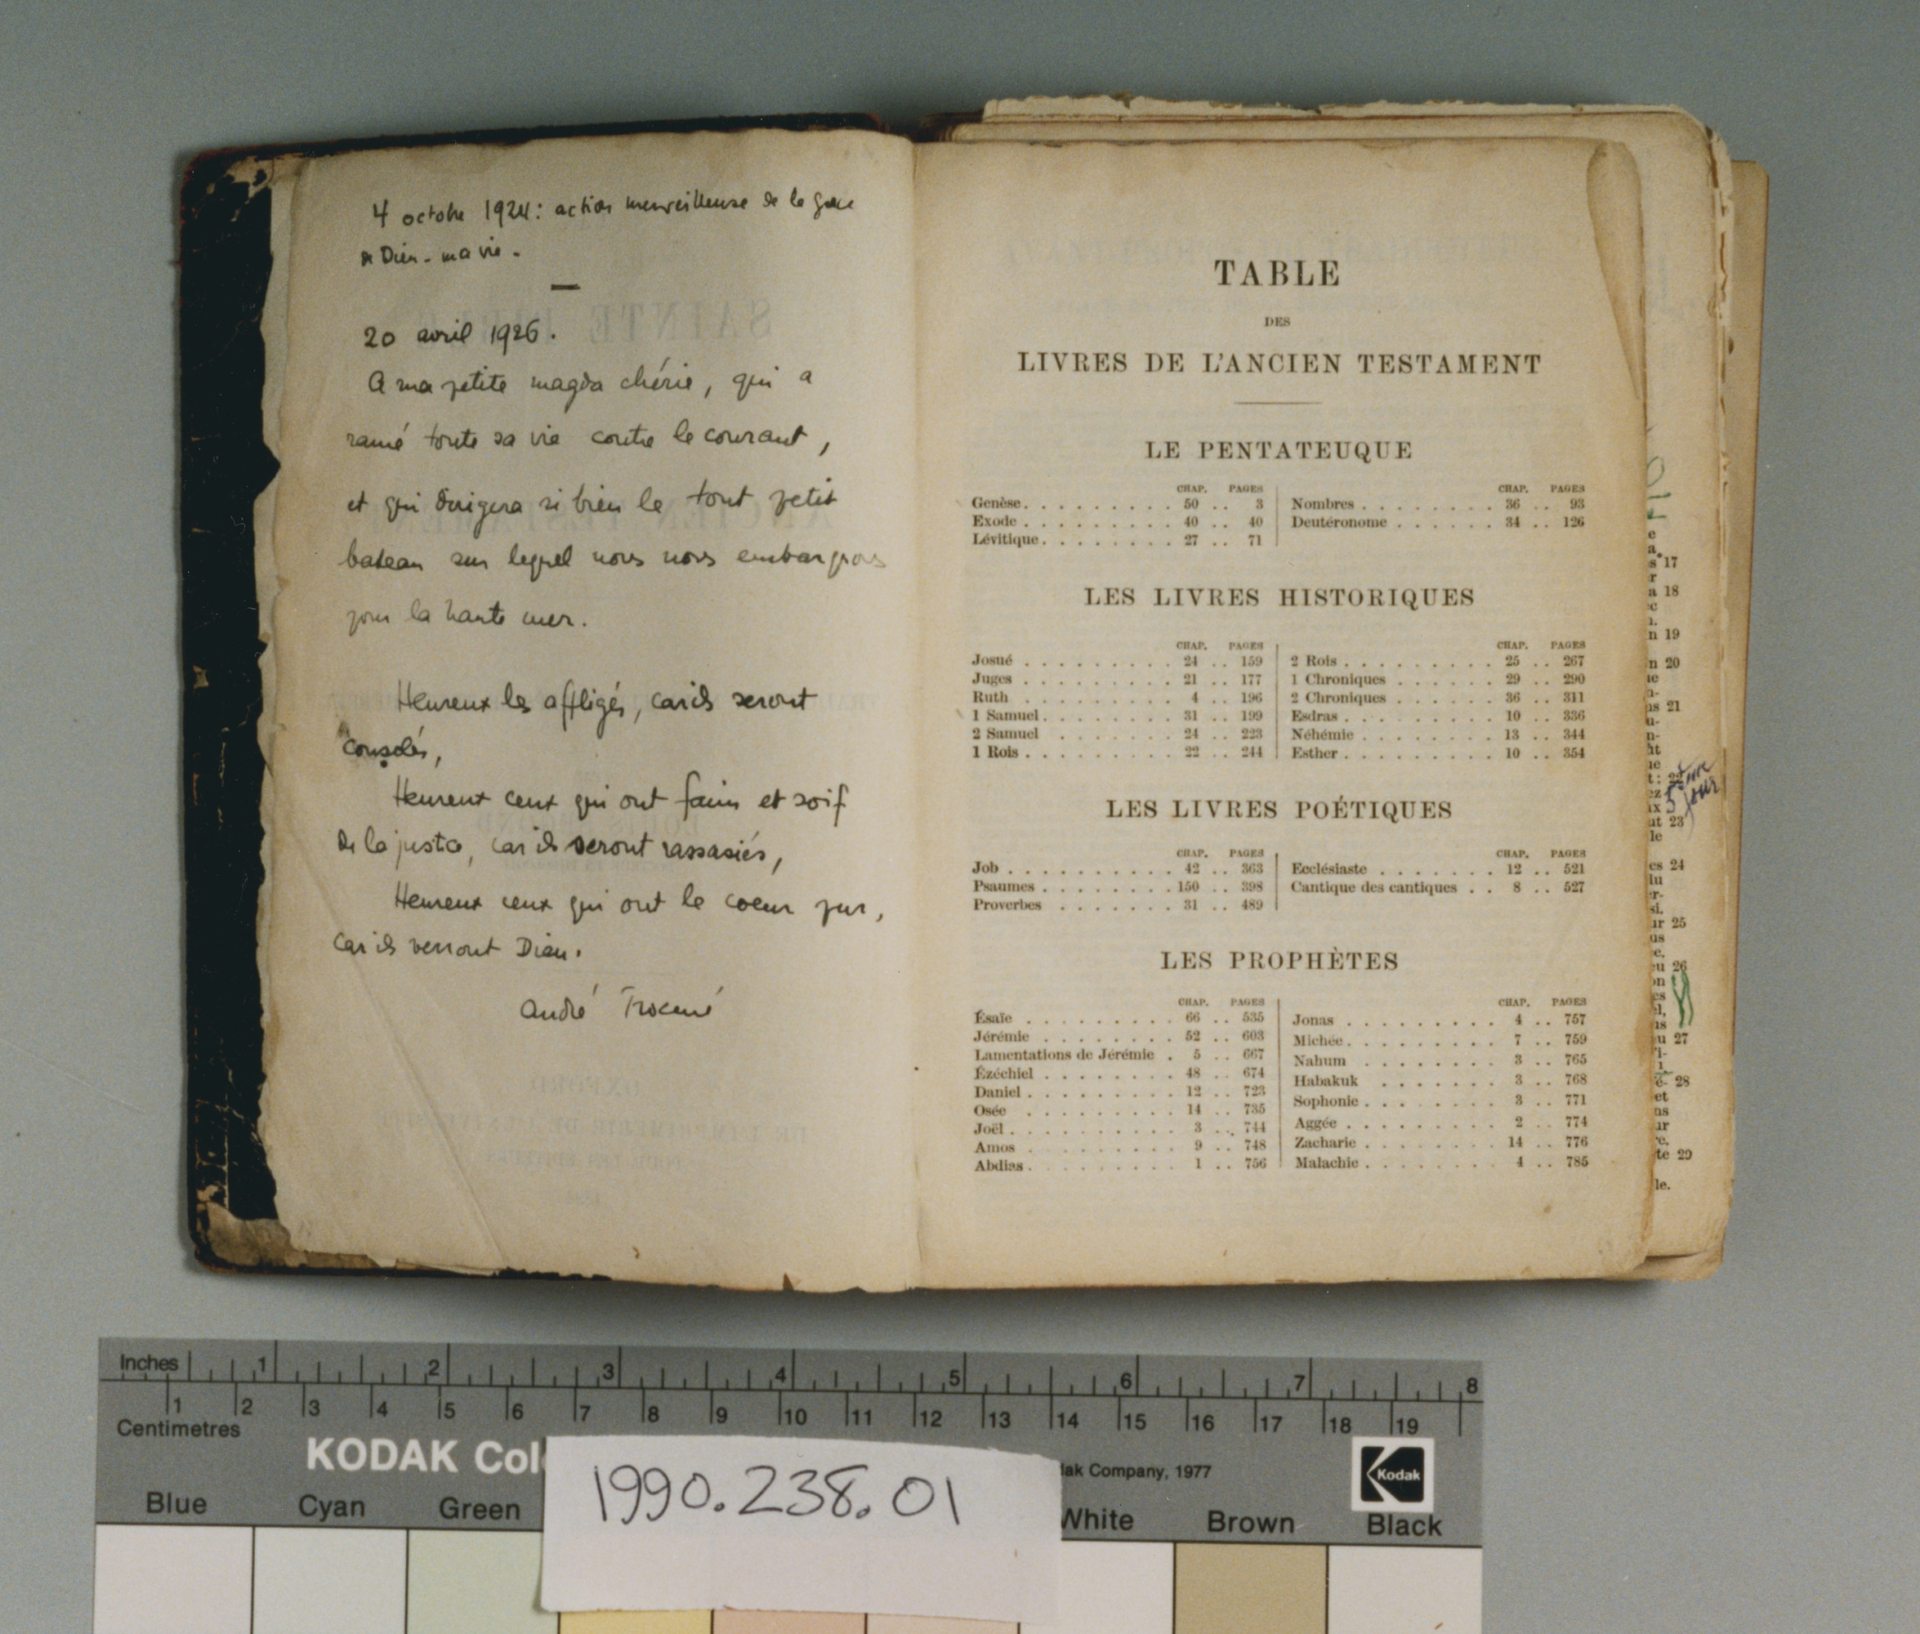 4 octobre 1924: action merveilleuse de la grace
de Dieu - ma vie -
20 avril 1926.
A ma petite magda chérie, qui a
ramé toute sa vie contre le courant,
et qui dirigera si bien le tout petit
bateau sur lequel nous nous embarquons
pour la haute mer.
Heureux les affligés, car ils seront
consolés,
Heureux ceux qui ont faim et soif
de la justce, car ils seront rassasiés,
Heureux ceux qui ont le coeur pur,
car ils verront Dieu.
André Trocmé
TABLE
DES
LIVRES DE L'ANCIEN TESTAMENT
LE PENTATEUQUE
CHAP. PAGES
Genèse 50 3
Exode 40 40
Lévitique 27 71
CHAP. PAGES
Nombres 36 93
Deutéronome 34 126
LES LIVRES HISTORIQUES
CHAP. PAGES
Josué 24 159
Juges 21 177
Ruth 4 196
1 Samuel 31 199
2 Samuel 24 223
1 Rois 22 244
CHAP. PAGES
2 Rois 25 267
1 Chroniques 29 290
2 Chroniques 36 311
Esdras 10 336
Néhémie 13 344
Esther 10 354
LES LIVRES POÉTIQUES
CHAP. PAGES
Job 42 363
Psaumes 150 398
Proverbes 31 489
CHAP. PAGES
Ecclésiaste 12 521
Cantique des cantiques 8 527
LES PROPHÈTES
CHAP. PAGES
Ésaïe 66 535
Jérémie 52 603
Lamentations de Jérémie 5 667
Ézéchiel 48 674
Daniel 12 723
Osée 14 735
Joël 3 744
Amos 9 748
Abdias 1 756
CHAP. PAGES
Jonas 4 757
Michée 7 759
Nahum 3 765
Habakuk 3 768
Sophonie 3 771
Aggée 2 774
Zacharie 14 776
Malachie 4 785
17
18
19
20
21
5ème
jour
23
24
25
26
27
28
29
Inches 1 2 3 4 5 6 7 8
1 2 3 4 5 6 7 8 9 10 11 12 13 14 15 16 17 18 19
Centimetres
KODAK Col
dak Company, 1977
Kodak
Blue Cyan Green White Brown Black
1990.238.01